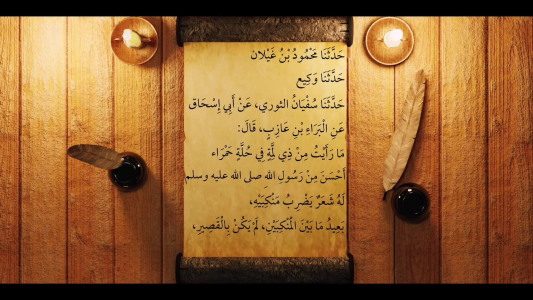 حَدَّثَنَا مَحْمُودُ بْنُ غَيْلَان
حَدَّثَنَا وَكِيع
حَدَّثَنَا سُفْيَانُ الثوري، عَنْ أَبِي إِسْحَاق
عَنِ الْبَرَاءِ بْنِ عَازِبٍ، قَالَ:
مَا رَأَيْتُ مِنْ ذِي لِمَّةٍ فِي حُلَّةٍ حَمْرَاء
أَحْسَنَ مِنْ رَسُولِ الله صلى الله عليه وسلم
لَهُ شَعَرٌ يَضْرِبُ مَنْكِبَيْهِ،
بَعِيدُ مَا بَيْنَ الْمَنْكِبَيْنِ، لَمْ يَكُنْ بِالْقَصِيرِ،